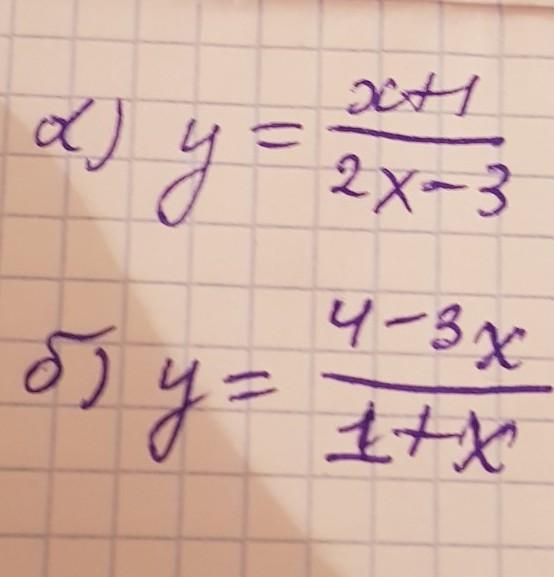 а) y = (x+1)/(2x-3)
б) y = (4-3x)/(1+x)